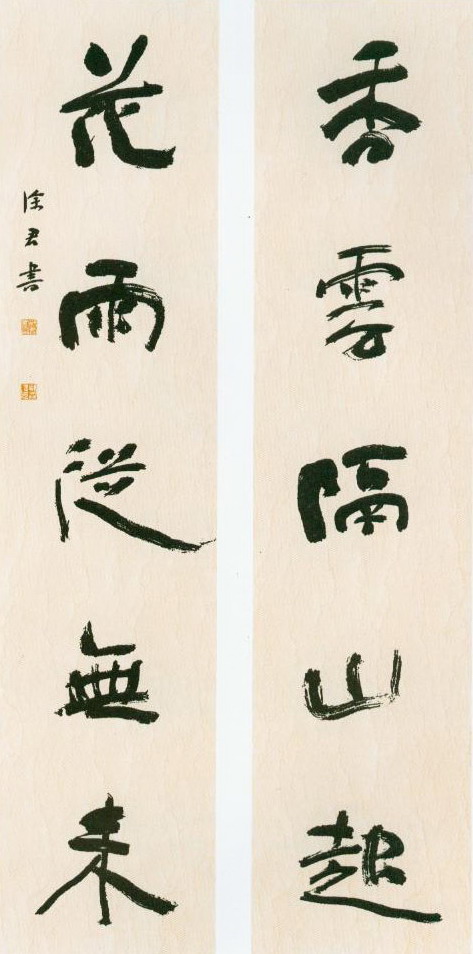 香雲隔山起
花雨從無来
徐君書